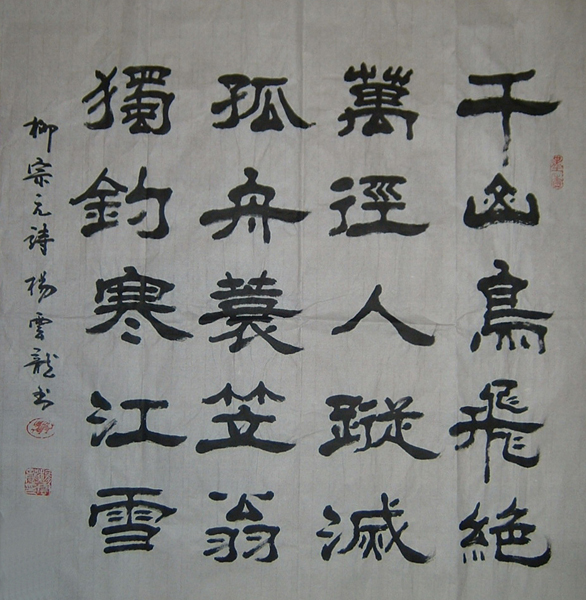 千山鳥飛絕
萬徑人蹤滅
孤舟蓑笠翁
獨釣寒江雪
柳宗元詩 楊雲龍書